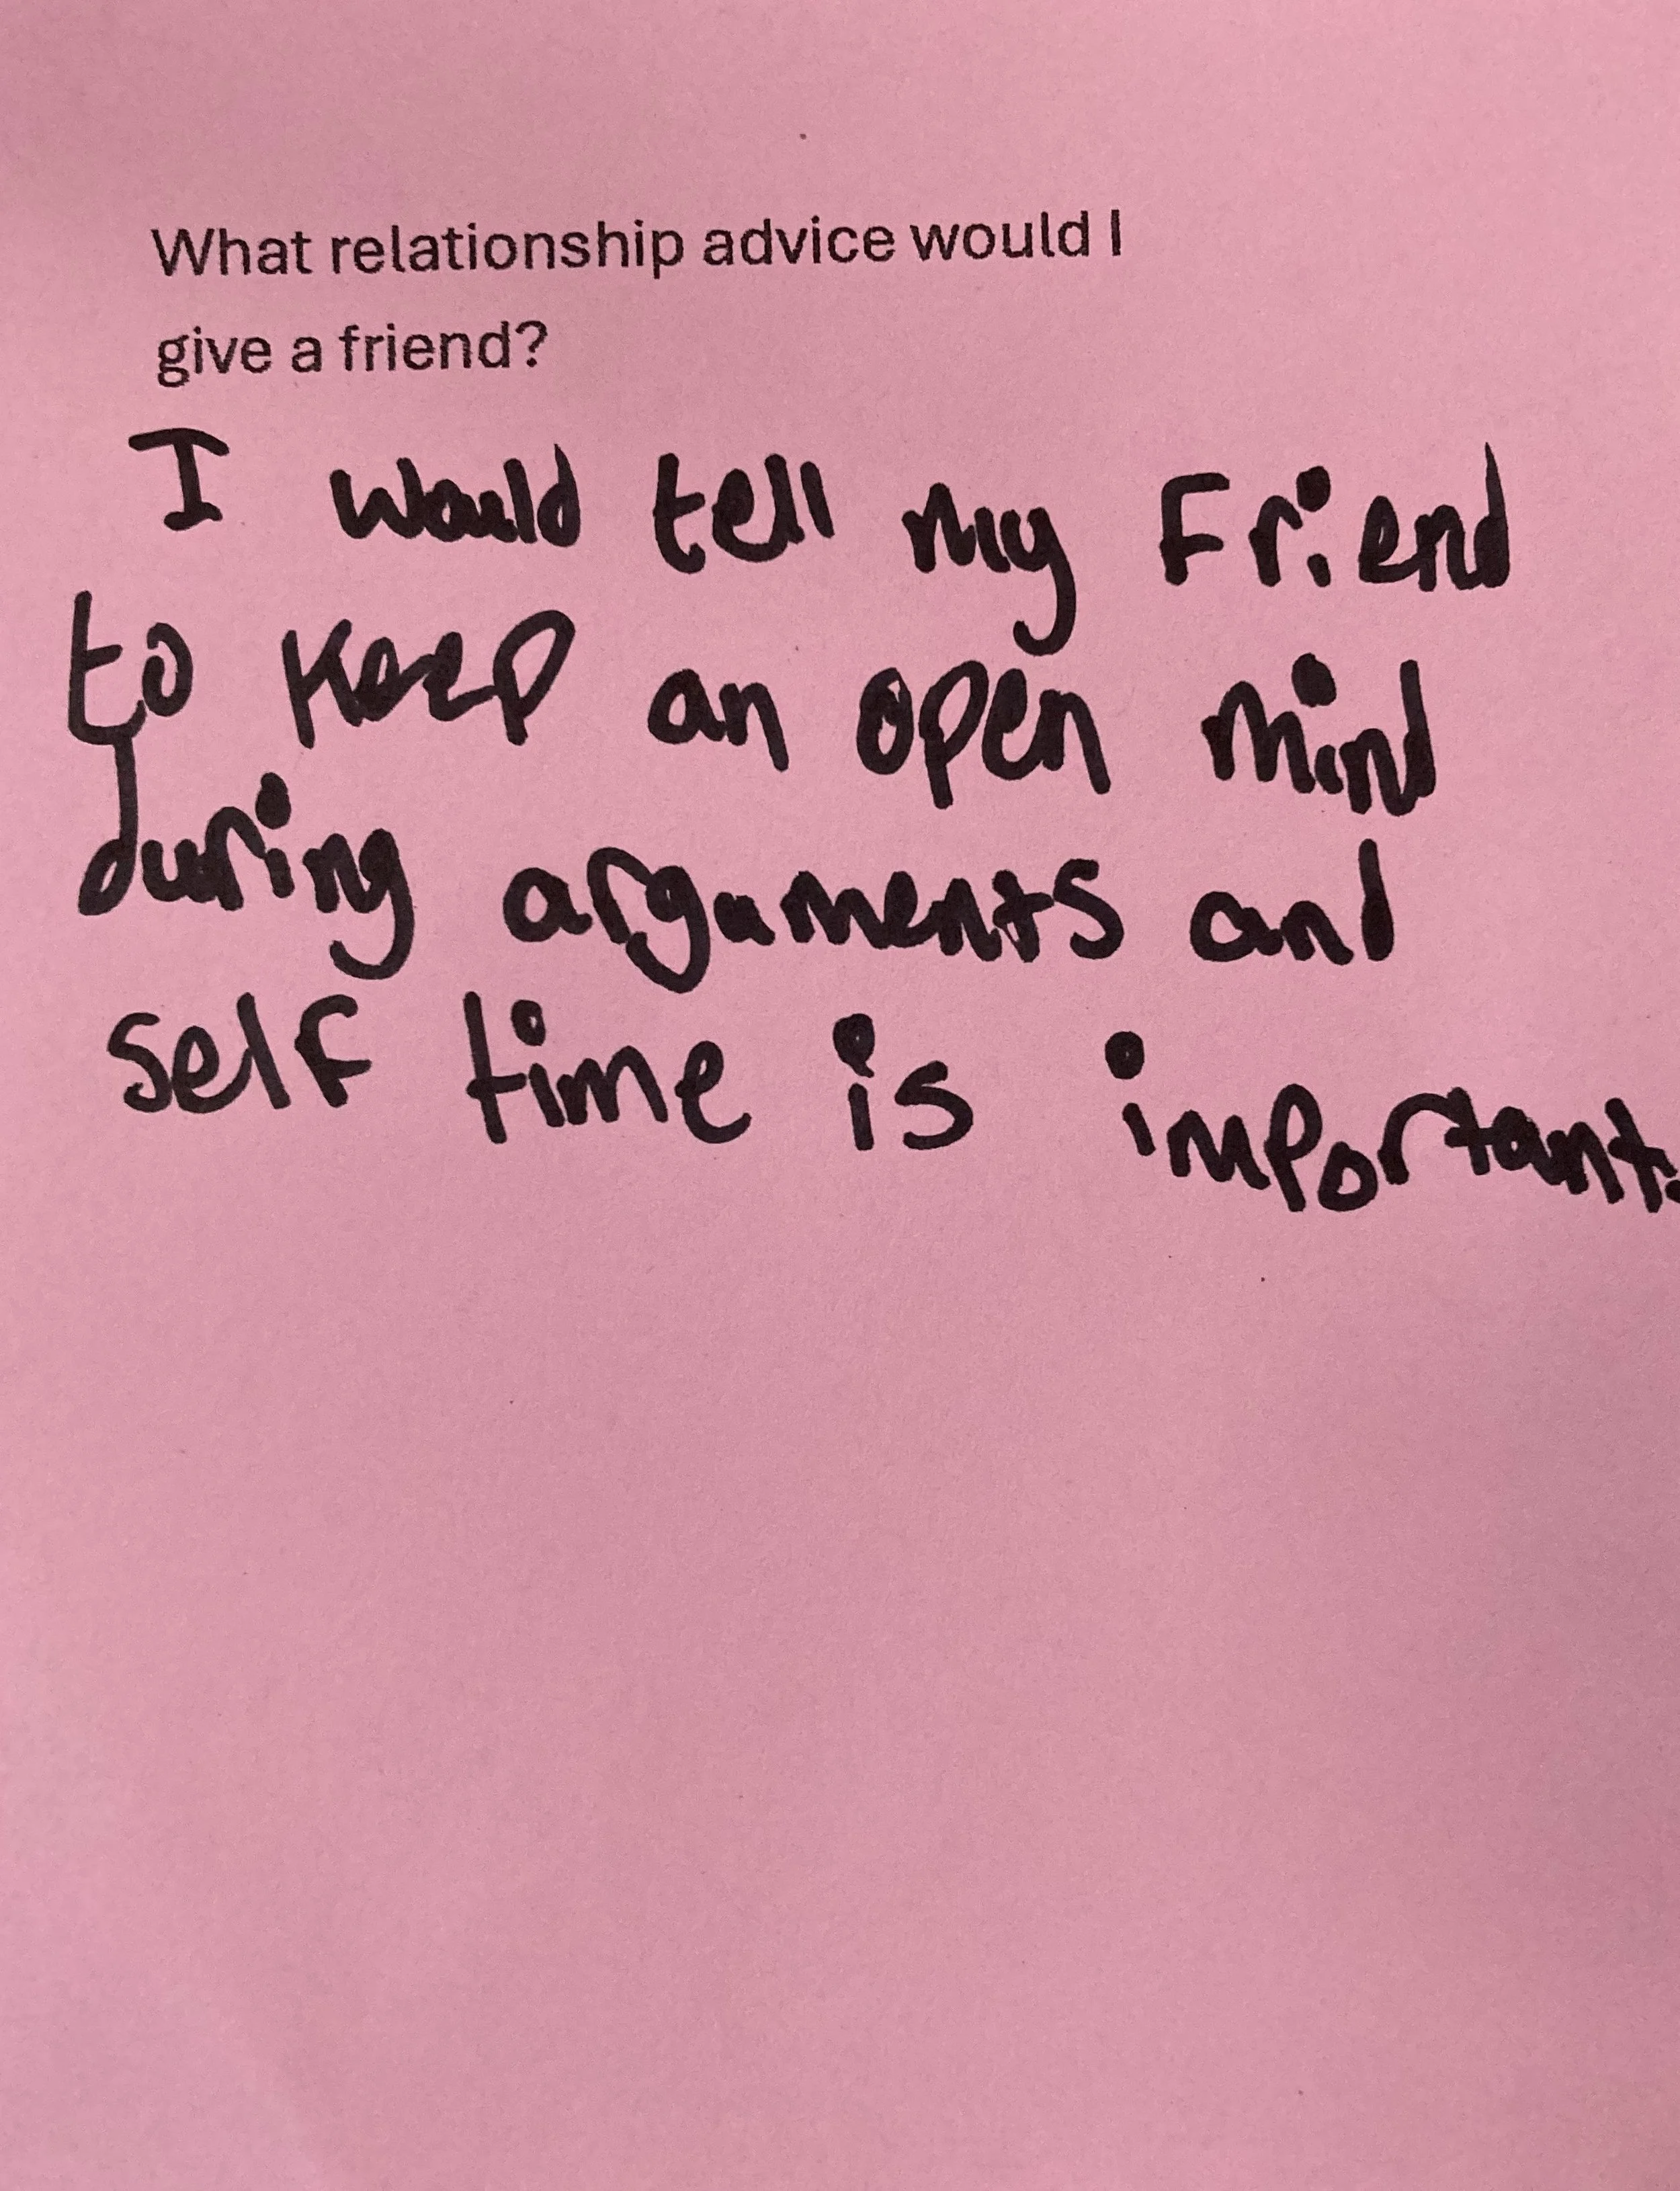 What relationship advice would I
give a friend?
I would tell my Friend
to Keep an open mind
during arguments and
self time is important.